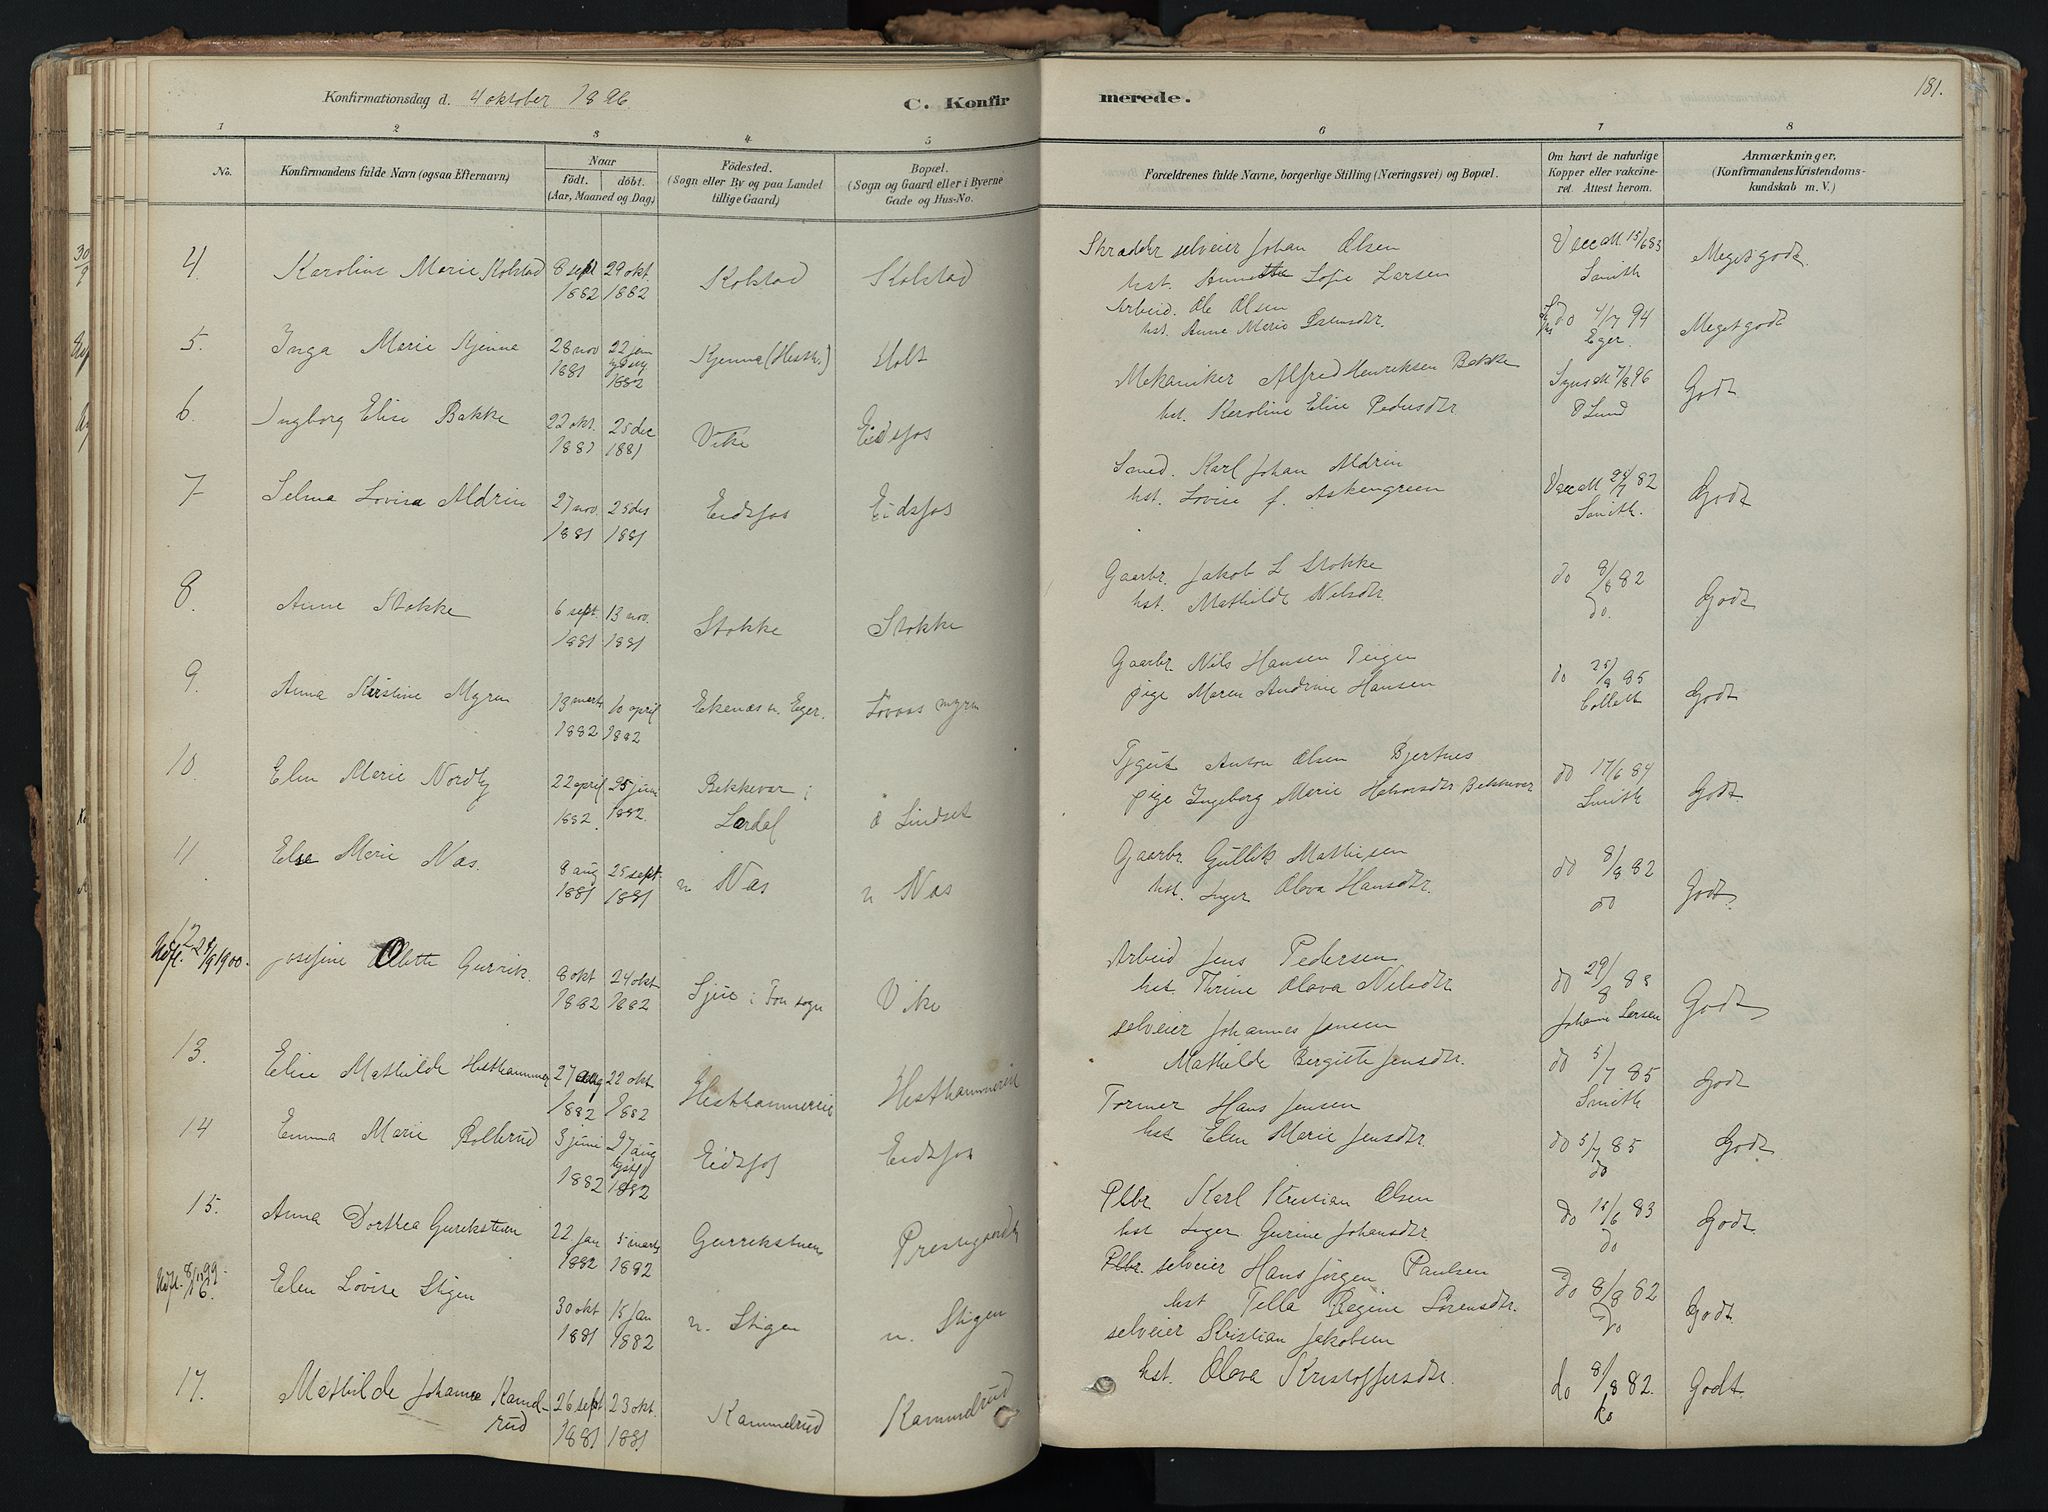 Konfirmationsdag d. 4 oktober 1896.
C. Konfirmerede.
181.
1 2 3 4 5 6 7 8
No.
Konfirmandens fulde Navn (ogsaa Efternavn)
Naar
födt. döbt.
(Aar, Maaned og Dag)
Födested.
(Sogn eller By og paa Landet
tillige Gaard)
Bopæl.
(Sogn og Gaard eller i Byerne
Gade og Hus-No.
Forældrenes fulde Navne, borgerlige Stilling (Næringsvei) og Bopæl.
Om havt de naturlige
Kopper eller vakcine-
ret. Attest herom.
Anmærkninger.
(Konfirmandens Kristendoms-
kundskab m. V.)
4. Karoline Marie Kolstad 8 sept 1882 29 okt 1882 Kolstad Kolstad
Skrædder selveier Johan Olsen
hst. Annette Sofie Larsen
Vacc att 15/6 83 Smith
Meget godt.
5. Inga Marie Kjenna 28 nov 1881 22 jan 1882 Kjenna (Hesth.) Holt
Arbeid. Ole Olsen
hst. Anne Marie Larensdtr.
do 4/7 94 Eger.
Meget godt
6. Ingborg Elise Bakke 22 okt. 1881 25 dec 1881 Vike Eidsfos
Mekaniker Alfred Henriksen Bakke
hst. Karoline Elise Pedersdtr
Synsatt 7/8 96 P Lund
Godt
7 Selma Lovisa Aldrin 27 nov. 1881 25 des 1881 Eidsfos Eidsfos
Smed. Karl Johan Aldrin
hst. Lovise f. Askengreen
Vacc att 24/7 82 Smith.
Godt
8. Anne Stokke 6 sept. 1881 13 nov. 1881 Stokke Stokke
Gaarbr. Jakob L Stokke
hst. Mathilde Nilsdtr.
do 8/8 82 do.
Godt
9. Anna Kristine Myren 13 marts 1882 10 april 1882 Ekenæs n. Eger. Lovaas myren
Gaarbr. Nils Hansen Teigen
pige Maren Andrine Hansen
do 25/8 85 Collett
Godt
10. Elen Marie Nordby 22 april 1882. 25 juni 1882. Bekkevar i Lardal ø Lindset
Tjgut Anton Olsen Bjertnes
pige Ingeborg Marie Halvorsdtr Bekkevar
do 17/6 84 Smith
Godt.
11. Else Marie Næs. 8 aug 1881 25 sept. 1881 n Næs n Næs
Gaarbr Gullik Mathisen
hst. Inger Olava Hansdtr.
do 8/8 82 do
Godt.
12 Utfl. 24/9 1900. Josefine Olette Gurrik. 8 okt 1882 24 okt 1882 i Fon sogn Vike
Arbeid Jens Pedersen
hst. Thrine Olava Nilsdtr
do 29/8 83 Johanne Larsen
Godt
13. Elise Mathilde Hesthammer 27 aug 1882 22 okt 1882 Hesthammereie Hesthammereie
selveier Johannes Jensen
Mathilde Birgitte Jensdtr.
do 5/7 85 Smith
Godt
14 Emma Marie Bollerud 3 juni 1882 27 aug 1882 Eidsfos Eidsfos
Former Hans Jensen
hst Elen Marie Jensdtr.
do 5/7 85 do
Godt
15. Anna Dorthea Gurikstuen 22 jan 1882 5 marts 1882 Gurrikstuen Prestegaarden
Plbr Karl Kristian Olsen
hst Inger Gurine Johansdtr
do 15/6 83 do
Godt.
Utfl. 8/11 99. 16. Elen Lovise Stigen 30 okt 1881 15 jan 1882 n. Stigen n. Stigen
Plbr. selveier Hans Jørgen Paulsen
hst Tella Regine Sørensdtr.
do 8/8 82 Do
Godt.
17. Mathilde Johanne Kamdrud 26 sept 1881 23 okt. 1881 Kammelrud Kammelrud
selveier Kristian Jakobsen
hst. Olava Kristoffersdtr.
do 8/8 82. do
Godt.